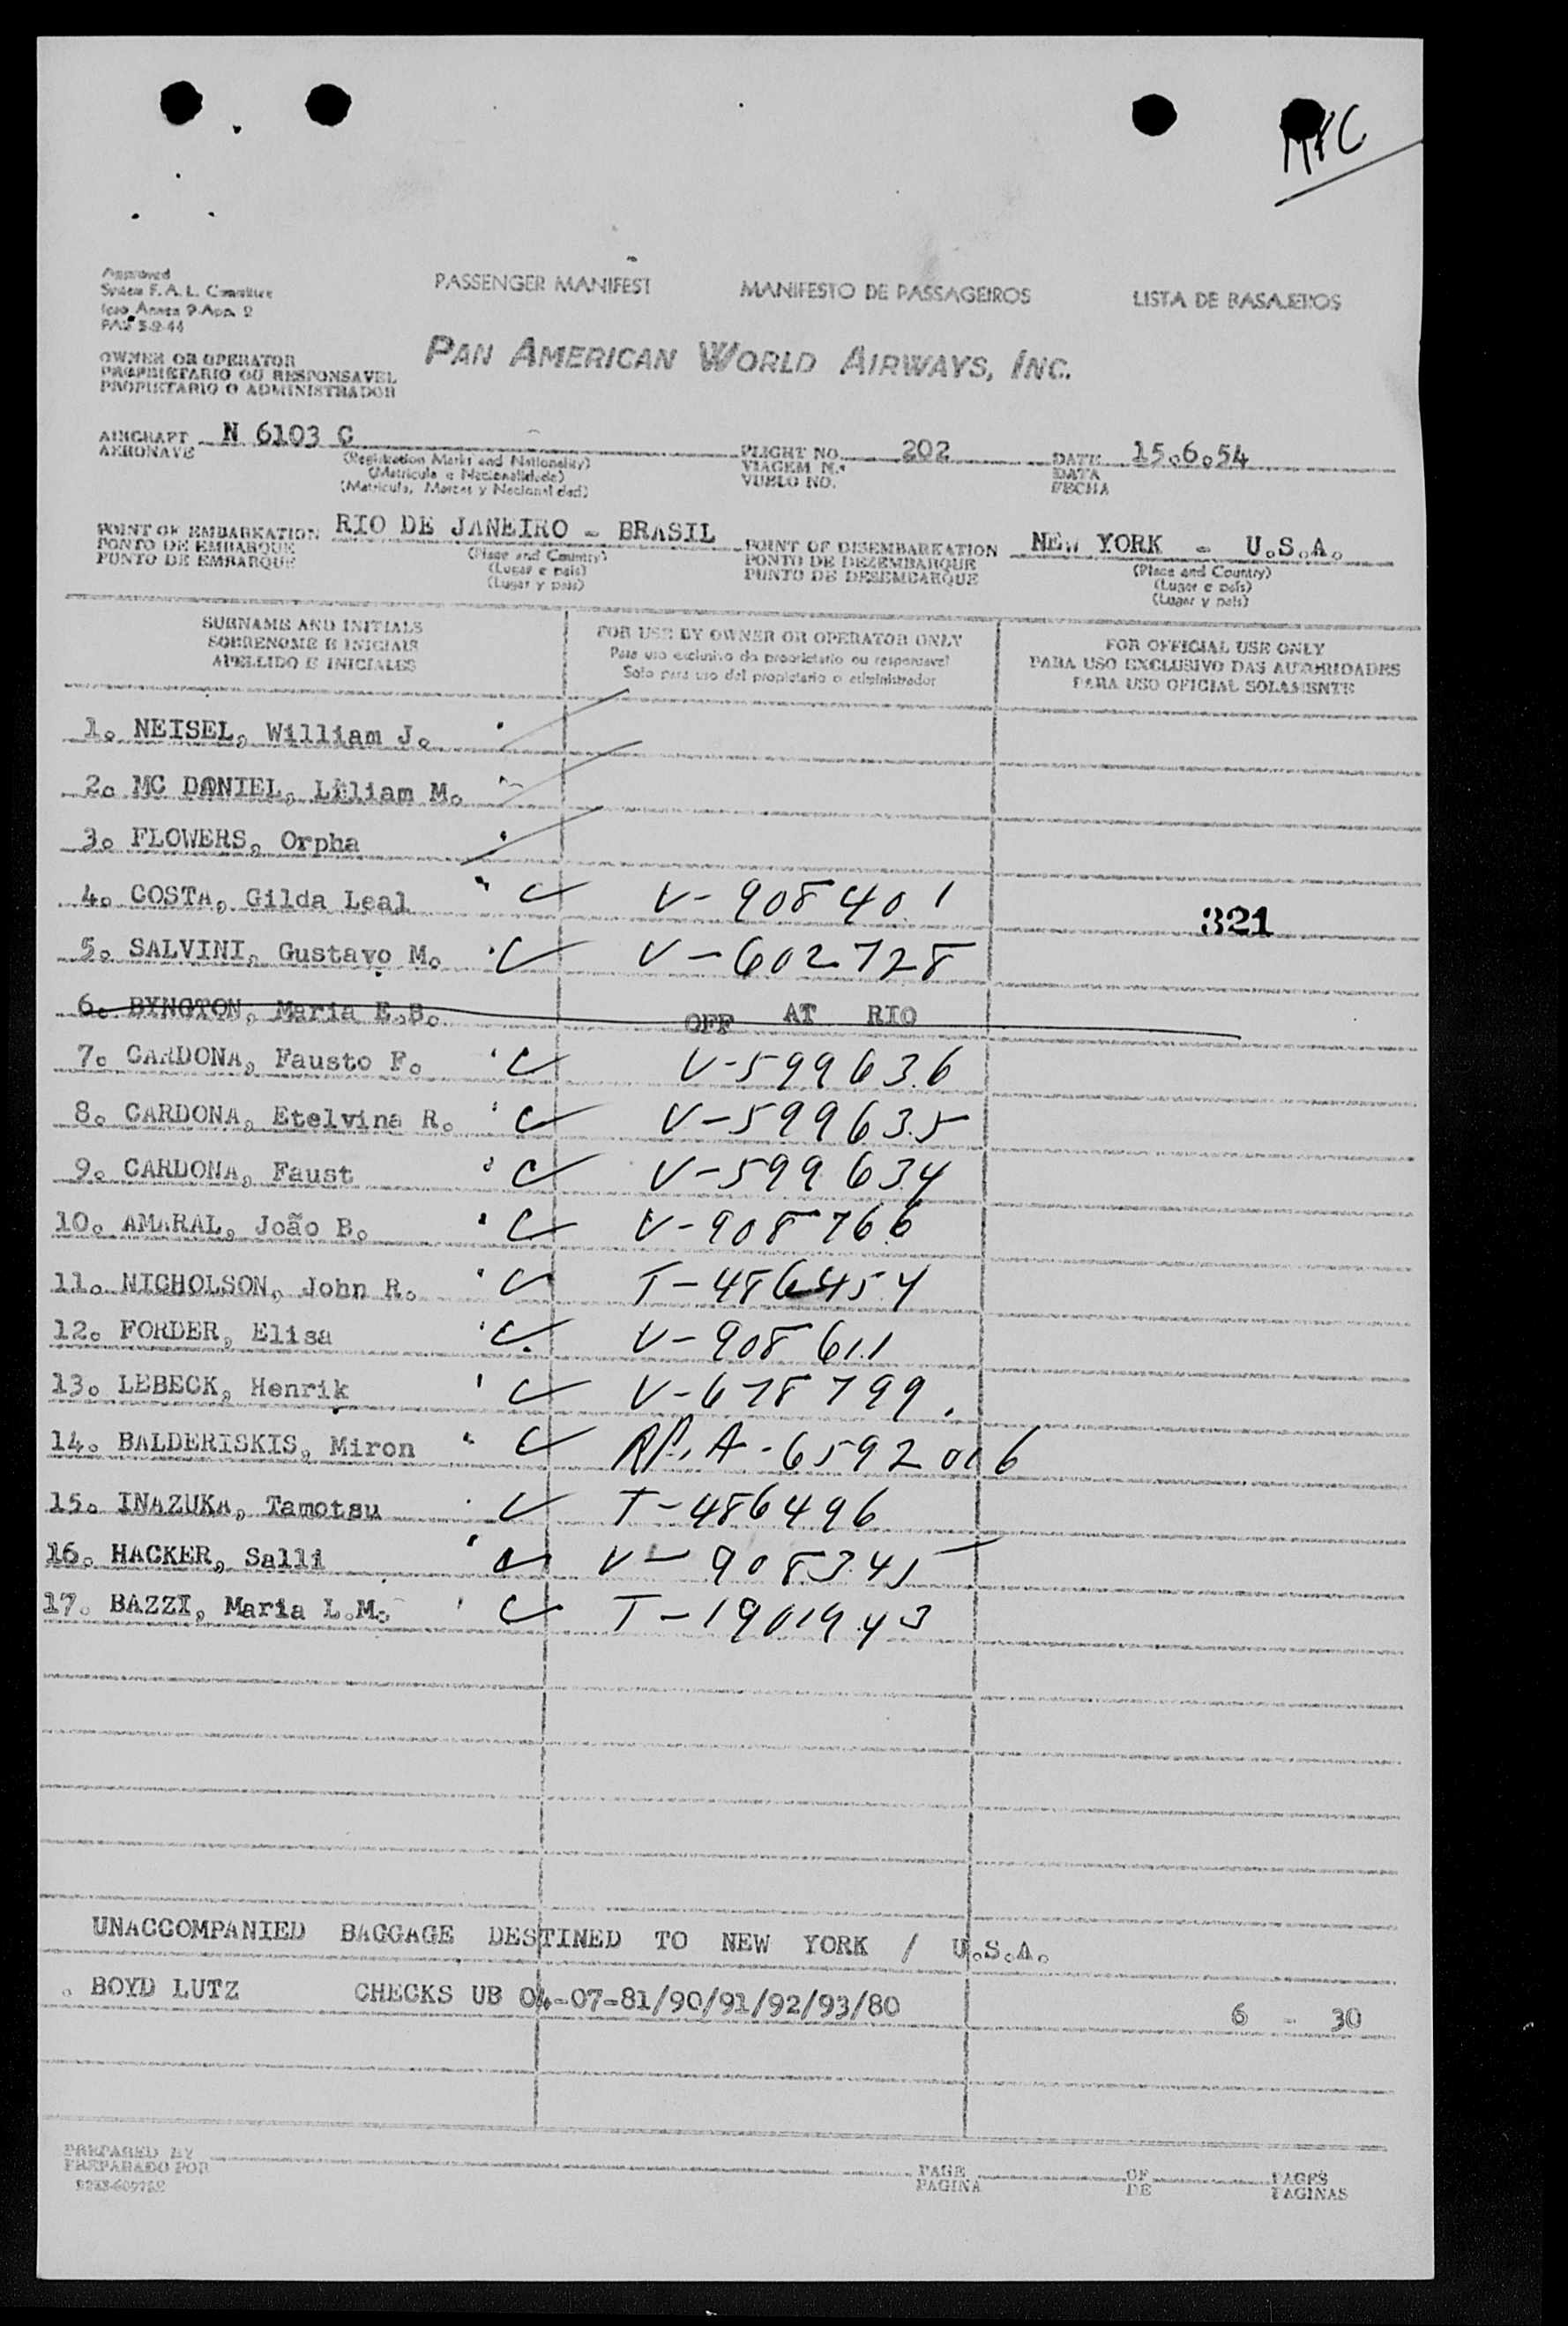 MRC
Approved
System F. A. L. Committee
Icao Annex 9-App. 2
PAS 3-9-44
PASSENGER MANIFEST MANIFESTO DE PASSAGEIROS LISTA DE PASAJEROS
PAN AMERICAN WORLD AIRWAYS, INC.
OWNER OR OPERATOR
PROPRIETARIO OU RESPONSAVEL
PROPIETARIO O ADMINISTRADOR
AIRCRAFT N 6103 C FLIGHT NO. 202 DATE 15.6.54
AERONAVE (Registration Marks and Nationality) VIAGEM N.º DATA
(Matricula e Nacionalidade) VUELO NO. FECHA
(Matricula, Marcas y Nacionalidad)
POINT OF EMBARKATION RIO DE JANEIRO - BRASIL POINT OF DISEMBARKATION NEW YORK - U.S.A.
PONTO DE EMBARQUE (Place and Country) PONTO DE DEZEMBARQUE (Place and Country)
PUNTO DE EMBARQUE (Lugar e pais) PUNTO DE DESEMBARQUE (Lugar e pais)
(Lugar y pais) (Lugar y pais)
SURNAME AND INITIALS FOR USE BY OWNER OR OPERATOR ONLY FOR OFFICIAL USE ONLY
SOBRENOME E INICIAIS Para uso exclusivo do proprietario ou responsavel PARA USO EXCLUSIVO DAS AUTORIDADES
APELLIDO E INICIALES Solo para uso del propietario o administrador PARA USO OFICIAL SOLAMENTE
1. NEISEL, William J.
2. MC DANIEL, Liliam M.
3. FLOWERS, Orpha
4. COSTA, Gilda Leal V-908401
321
5. SALVINI, Gustavo M. V-602728
6. BYNGTON, Maria E.B. OFF AT RIO
7. CARDONA, Fausto F. V-599636
8. CARDONA, Etelvina R. V-599635
9. CARDONA, Faust V-599634
10. AMARAL, João B. V-908766
11. NICHOLSON, John R. T-486454
12. FORDER, Elisa V-908611
13. LEBECK, Henrik V-678799
14. BALDERISKIS, Miron RP. A-6592016
15. INAZUKA, Tamotsu T-486496
16. HACKER, Salli V-908345
17. BAZZI, Maria L.M. T-1901943
UNACCOMPANIED BAGGAGE DESTINED TO NEW YORK / U.S.A.
. BOYD LUTZ CHECKS UB 04-07-81/90/91/92/93/80 6 - 30
PREPARED BY PAGE OF PAGES
PREPARADO POR PAGINA DE PAGINAS